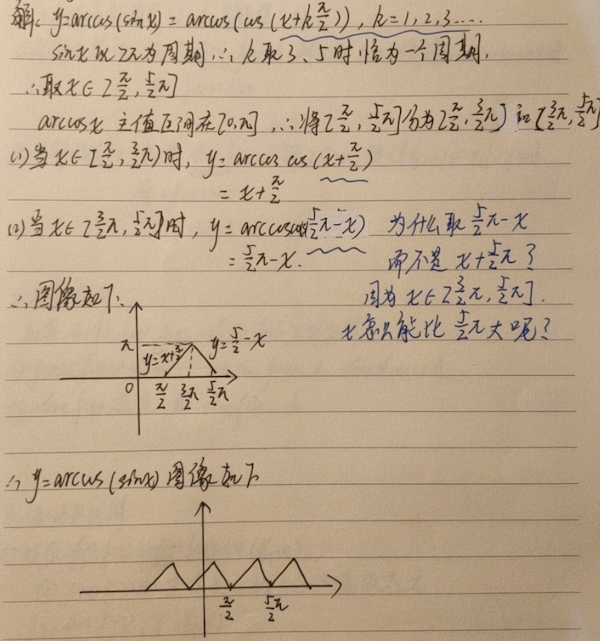 解: y=arccos(sinx) = arccos(cos(x+k\frac{π}{2})), k=1,2,3....
sinx 以 2π为周期, ∴ k取 3、5时恰为一个周期.
∴取 x∈[\frac{π}{2}, \frac{5}{2}π]
arccosx 主值区间在[0,π], ∴将[\frac{π}{2}, \frac{5}{2}π]分为[\frac{π}{2}, \frac{3}{2}π) 和[\frac{3}{2}π, \frac{5}{2}π]
(1)当 x∈[\frac{π}{2}, \frac{3}{2}π)时, y= arccos cos(x+\frac{π}{2})
= x+\frac{π}{2}
(2)当 x∈[\frac{3}{2}π, \frac{5}{2}π]时, y= arccoscos(\frac{5}{2}π-x)
= \frac{5}{2}π-x.
为什么取 \frac{5}{2}π-x
而不是 x+\frac{5}{2}π?
因为 x∈[\frac{3}{2}π, \frac{5}{2}π].
x怎么能比 \frac{5}{2}π大呢?
∴图像如下:
π
y=x+\frac{π}{2}
y=\frac{5}{2}-x
0
\frac{π}{2} \frac{3}{2}π \frac{5}{2}π
∴ y=arccos(sinx) 图像如下
\frac{π}{2} \frac{5}{2}π